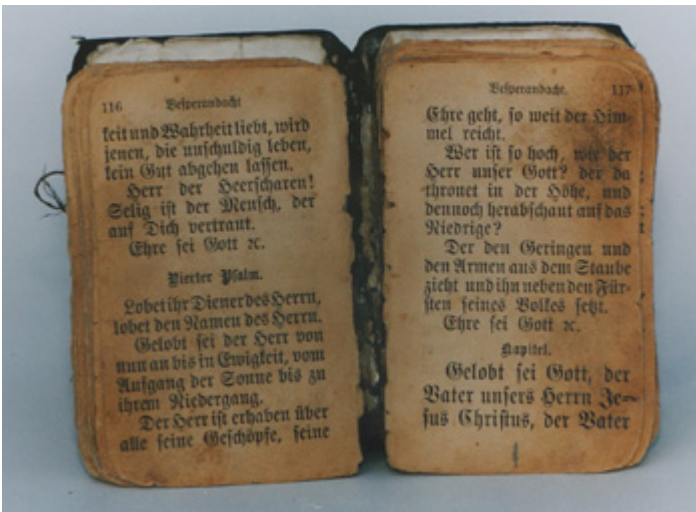 116 Vesperandacht
keit und Wahrheit liebt, wird
jenen, die unschuldig leben,
kein Gut abgehen lassen.
Herr der Heerscharen!
Selig ist der Mensch, der
auf Dich vertraut.
Ehre sei Gott ꝛc.
Vierter Psalm.
Lobet ihr Diener des Herrn,
lobet den Namen des Herrn.
Gelobt sei der Herr von
nun an bis in Ewigkeit, vom
Aufgang der Sonne bis zu
ihrem Niedergang.
Der Herr ist erhaben über
alle seine Geschöpfe, seine
Vesperandacht. 117
Ehre geht, so weit der Him-
mel reicht.
Wer ist so hoch, wie der
Herr unser Gott? der da
thronet in der Höhe, und
dennoch herabschaut auf das
Niedrige?
Der den Geringen und
den Armen aus dem Staube
zieht und ihn neben den Für-
sten seines Volkes setzt.
Ehre sei Gott ꝛc.
Kapitel.
Gelobt sei Gott, der
Vater unsers Herrn Je-
sus Christus, der Vater